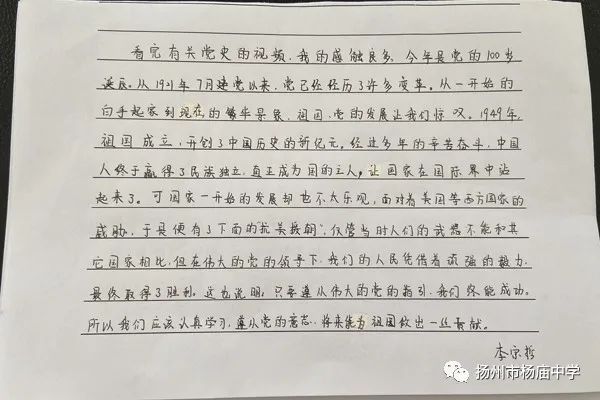 看完有关党史的视频，我的感触良多，今年是党的100岁
诞辰。从1921年7月建党以来，党已经经历了许多变革。从一开始的
白手起家到现在的繁华景象，祖国、党的发展让我们惊叹。1949年，
祖国成立，开创了中国历史的新纪元。经过多年的辛苦奋斗，中国
人终于赢得了民族独立，真正成为国的主人，让国家在国际界中站
起来了。可国家一开始的发展却也不太乐观，面对着美国等西方国家的
威胁，于是便有了下面的"抗美援朝"，仅管当时人们的武器不能和其
它国家相比，但在伟大的党的领导下，我们的人民凭借着顽强的毅力，
最终取得了胜利。这也说明，只要遵从伟大的党的指引，我们终能成功。
所以我们应该认真学习，遵从党的意志，将来能为祖国做出一丝贡献。
李宗哲
扬州市杨庙中学